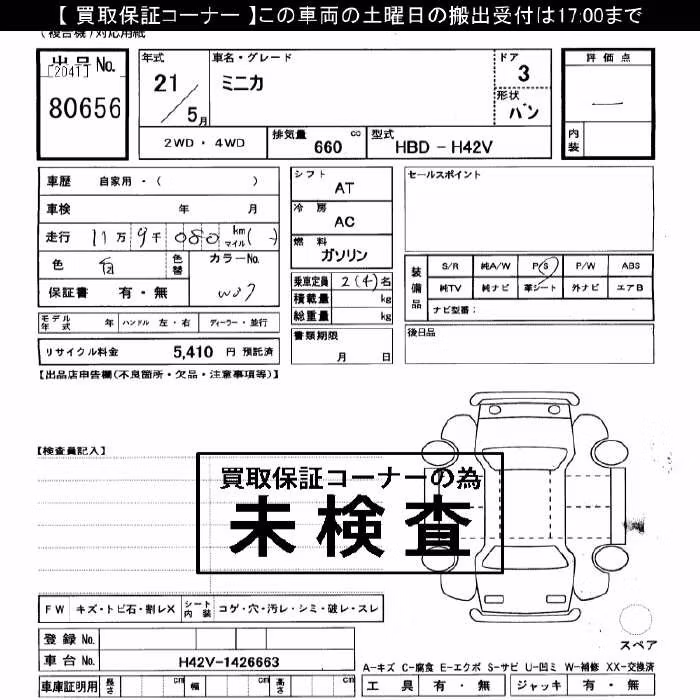 【 買取保証コーナー 】この車両の土曜日の搬出受付は17:00まで
(複合機)対応用紙
出品No.
[2041]
80656
年式
21/5月
車名・グレード
ミニカ
ドア
3
形状
バン
評価点
―
内装
2WD・4WD
排気量 660 cc
型式 HBD-H42V
車歴 自家用・( )
車検 年 月
走行 11万9千080 km マイル( )
色 白 色替
カラーNo. W07
保証書 有・無
モデル年式 年 ハンドル 左・右 ディーラー・並行
リサイクル料金 5,410 円 預託済
シフト AT
冷房 AC
燃料 ガソリン
乗車定員 2(4)名
積載量 kg
総重量 kg
書類期限
月 日
セールスポイント
装備品
S/R 純A/W P/S P/W ABS
純TV 純ナビ 革シート 外ナビ エアB
ナビ型番:
後日品
【出品店申告欄(不良箇所・欠品・注意事項等)】
【検査員記入】
買取保証コーナーの為
未検査
FW キズ・トビ石・割レX シート内装 コゲ・穴・汚レ・シミ・破レ・スレ
登録No.
車台No. H42V-1426663
車庫証明用 長さ cm 幅 cm 高さ cm
スペア
A-キズ C-腐食 E-エクボ S-サビ U-凹ミ W-補修 XX-交換済
工具 有・無 ジャッキ 有・無